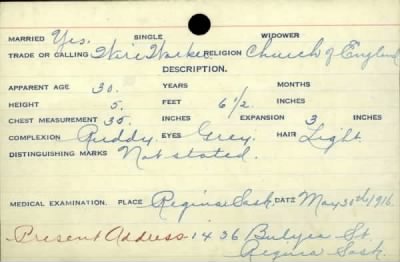 MARRIED Yes. SINGLE WIDOWER
TRADE OR CALLING Wire Worker RELIGION Church of England
DESCRIPTION.
APPARENT AGE 30. YEARS MONTHS
HEIGHT 5. FEET 6 1/2. INCHES
CHEST MEASUREMENT 35 INCHES EXPANSION 3 INCHES
COMPLEXION Ruddy. EYES Grey. HAIR Light
DISTINGUISHING MARKS Not stated.
MEDICAL EXAMINATION. PLACE Regina Sask. DATE May 30th/1916.
Present Address 1436 Bulyea St
Regina Sask.